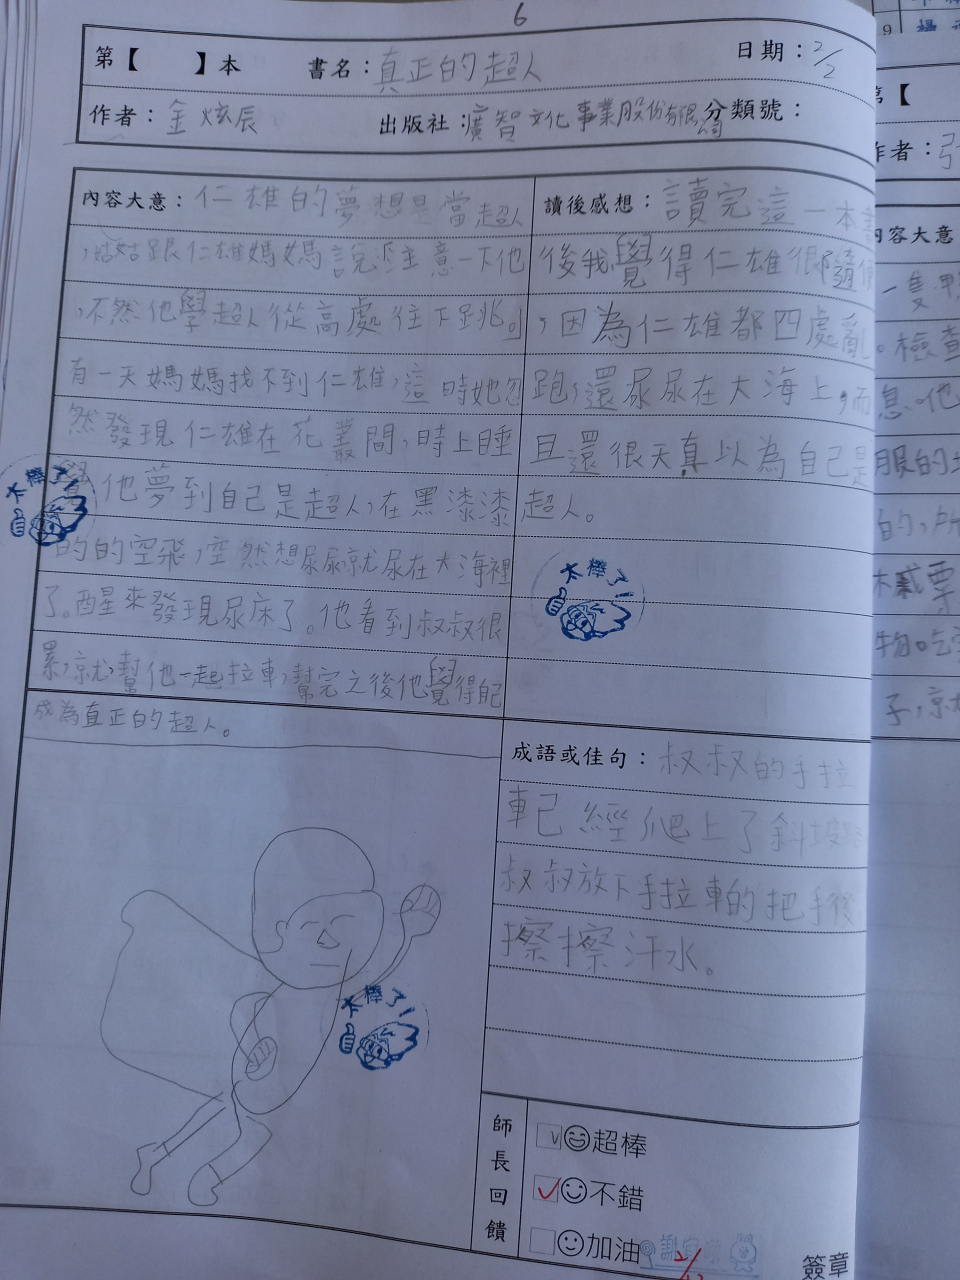 6
第【　　】本　書名：真正的超人　日期：2/2
作者：金炫辰　出版社：廣智文化事業股份有限公司　分類號：
內容大意：仁雄的夢想是當超人
，姑姑跟仁雄媽媽說「注意一下他
，不然他學超人從高處往下跳。」
有一天媽媽找不到仁雄，這時她忽
然發現仁雄在花叢間，時上睡
他夢到自己是超人，在黑漆漆
的的空飛，空然想尿尿就尿在大海裡
了。醒來發現尿床了。他看到叔叔很
累，就幫他一起拉車，幫完之後他覺得自己
成為真正的超人。
讀後感想：讀完這一本書
後我覺得仁雄很隨便
，因為仁雄都四處亂
跑，還尿尿在大海上，而
且還很天真以為自己是
超人。
太棒了!
太棒了!
太棒了!
成語或佳句：叔叔的手拉
車已經爬上了斜坡
叔叔放下手拉車的把手後
擦擦汗水。
師長回饋
v 超棒
✓ 不錯
加油
簽章
9
第【
作者：
內容大意
一隻
。檢查
息。他
服的
的，所
票
物吃
子，就